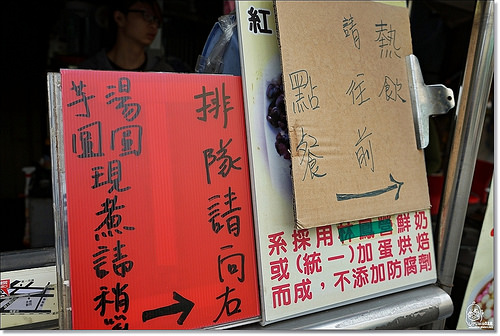 排隊請向右
湯圓
芋圓
現煮請稍
紅
熱飲
請往前
點餐
系採用
鮮奶
或(統一)加蛋烘焙
而成，不添加防腐劑